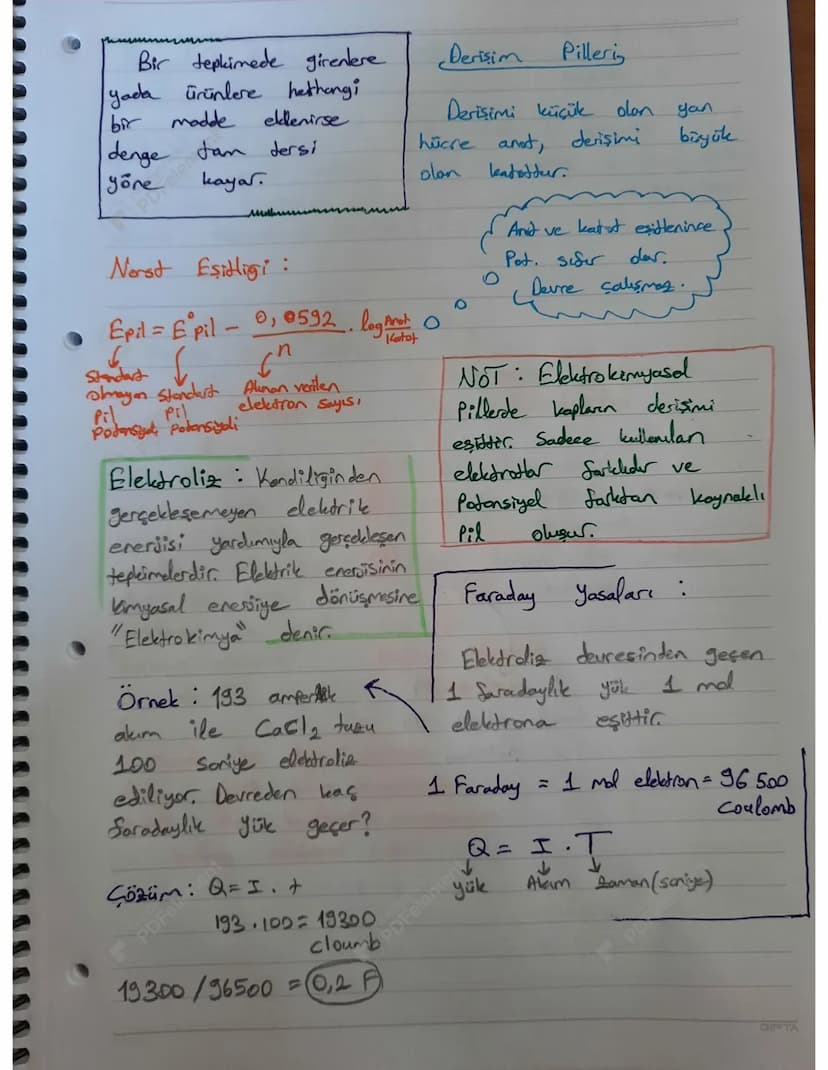 Bir tepkimede girenlere
yada ürünlere herhangi
bir madde eklenirse
denge tam tersi
yöne kayar.
Derişim Pilleri
Derişimi küçük olan yarı
hücre anot, derişimi büyük
olan katottur.
Anot ve katot eşitlenince
Pot. sıfır olur.
Devre çalışmaz.
Nerst Eşitliği :
Epil = E°pil - 0,0592 / n . log Anot / Katot
Standart olmayan Pil Potansiyeli
Standart Pil Potansiyeli
Alınan verilen elektron sayısı
NOT : Elektrokimyasal
Pillerde kapların derişimi
eşittir. Sadece kullanılan
elektrotlar farklıdır ve
Potansiyel farktan kaynaklı
Pil oluşur.
Elektroliz : Kendiliğinden
gerçekleşemeyen elektrik
enerjisi yardımıyla gerçekleşen
tepkimelerdir. Elektrik enerjisinin
kimyasal enerjiye dönüşmesine
"Elektrokimya" denir.
Faraday Yasaları :
Elektroliz devresinden geçen
1 faradaylık yük 1 mol
elektrona eşittir.
1 Faraday = 1 mol elektron = 96 500
Coulomb
Q = I . T
yük Akım Zaman (saniye)
Örnek : 193 amperlik
akım ile CaCl2 tuzu
100 saniye elektroliz
ediliyor. Devreden kaç
faradaylık yük geçer?
Çözüm : Q = I . t
193 . 100 = 19300
cloumb
19300 / 96500 = 0,2 F
GIPTA